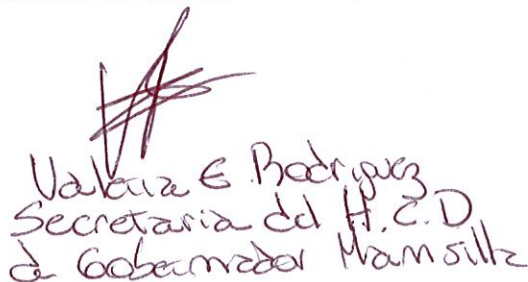 Valeria E. Rodriguez
Secretaria del H.C.D
de Gobernador Mansilla